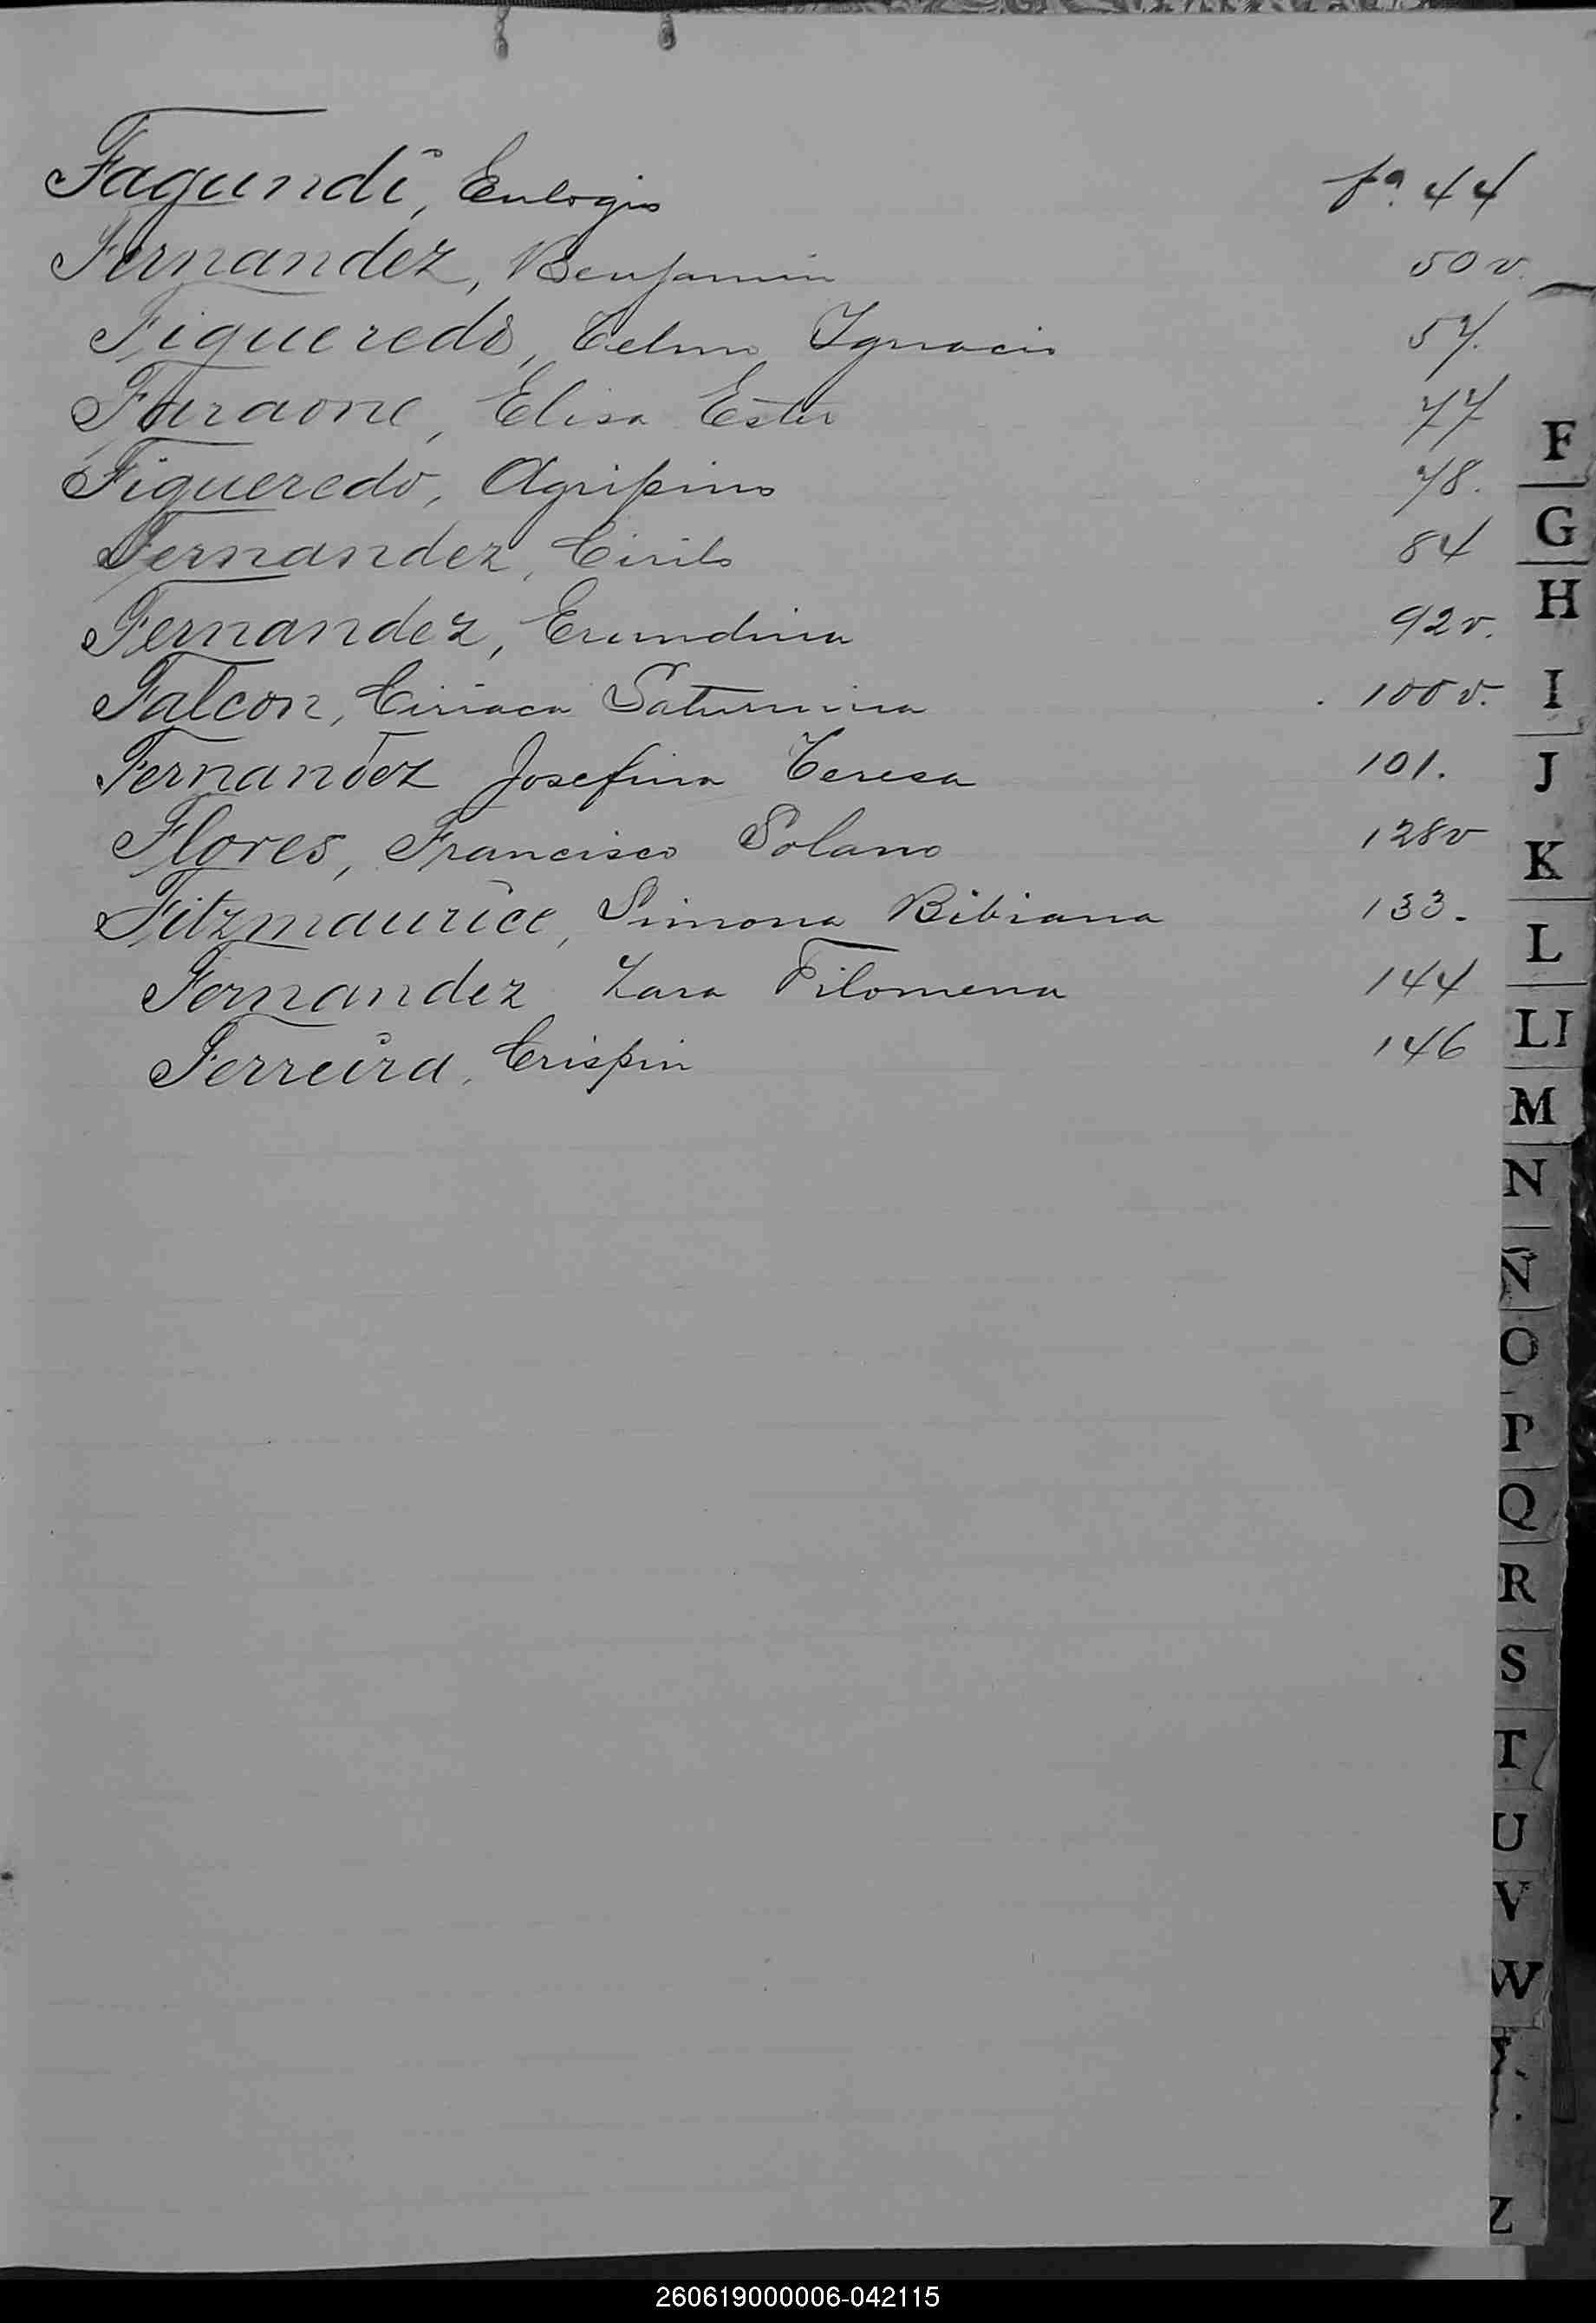 Fagundi, Eulogio fª. 44
Fernandez, Benjamin 50 v.
Figueredo, Telmo Ignacio 57.
Faraone, Elisa Ester 77
Figueredo, Agripino 78.
Fernandez, Cirilo 84
Fernandez, Erundina 92 v.
Falcon, Ciriaca Saturnina 100 v.
Fernandez Josefina Teresa 101.
Flores, Francisco Solano 128 v
Fitzmaurice, Simona Bibiana 133.
Fernandez Zara Filomena 144
Ferreira, Crispin 146
F
G
H
I
J
K
L
Ll
M
N
Ñ
O
P
Q
R
S
T
U
V
W
Z
260619000006-042115